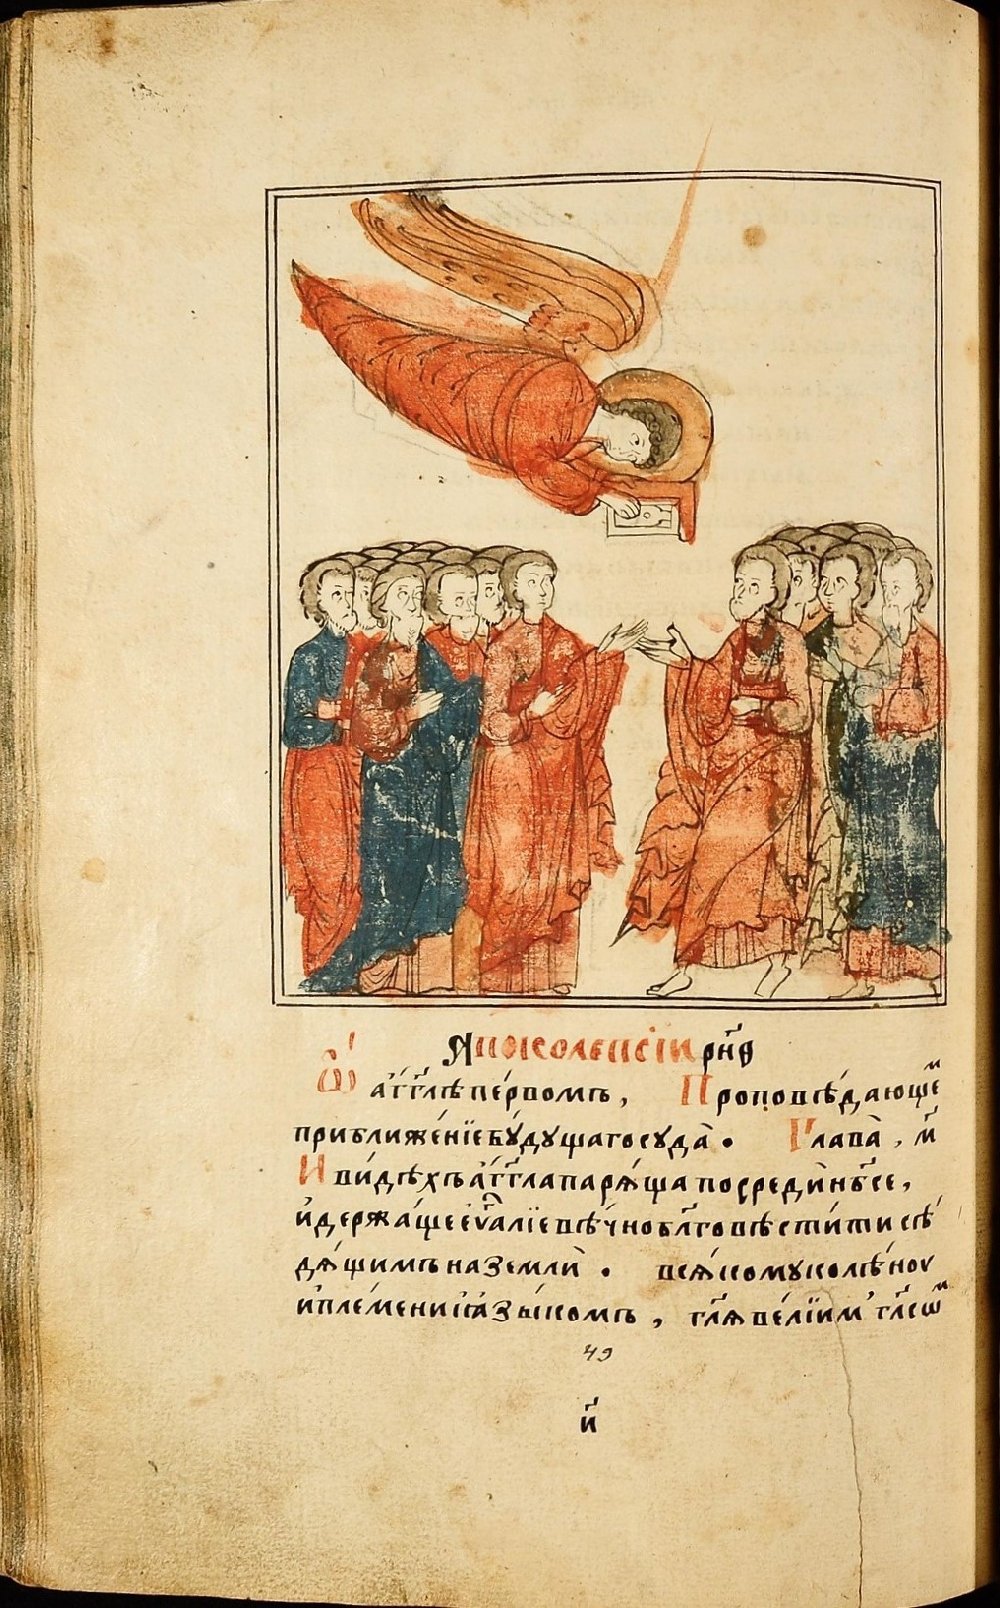 Апокалеѱсїи рн҃ѳ
Ѿ а҆́гг҃лѣ пе́рвомъ, Проповѣ́дающеⷨ
приближе́нїе бу́дущаго суда̀. Глава̀, м҃
И ви́дѣхъ а҆́гг҃ла паря́ща посреди̂ нб҃се,
и҆ держа́ще є҆ѵⷢ҇алїе вѣ́чно бл҃говѣсти́ти сѣ
дя́щимъ на земли̂. вся́кому колѣ́ноу
и҆ пле́мени и҆ ꙗ҆зы́комъ, гл҃я ве́лїим̾ гл҃сѡⷨ
49
и҃